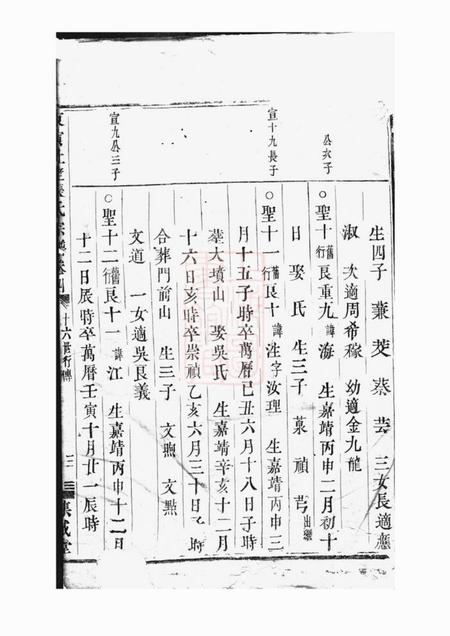 生四子 三女長適
淑 次適周希稼 幼適金九龍
公六子
○聖十行舊良重九諱海 生嘉靖丙申二月初十
日 娶氏 生三子 禎 芎出繼
宣十九長子
○聖十一行舊良十諱注字汝理 生嘉靖丙申三
月十五子時卒萬曆己丑六月十八日子時
葬大墳山 娶吳氏 生嘉靖辛亥十二月
十六日亥時卒崇禎乙亥六月三十日 時
合葬門前山 生三子 文煕 文點
文道 一女適吳良義
宣九公三子
○聖十二行舊良十一諱江 生嘉靖丙申十二月
十二日辰時卒萬曆壬寅十月廿一辰時
氏宗 卷四 十六 行 三 集成堂